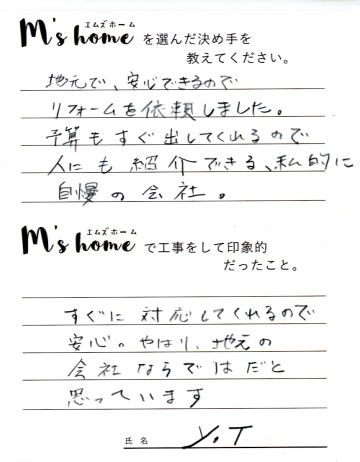 エムズホーム
M's home を選んだ決め手を
教えてください。
地元で、安心できるので
リフォームを依頼しました。
予算もすぐ出してくれるので
人にも紹介できる、私的に
自慢の会社。
エムズホーム
M's home で工事をして印象的
だったこと。
すぐに対応してくれるので
安心。やはり、地元の
会社ならではだと
思っています
氏名 Y.T